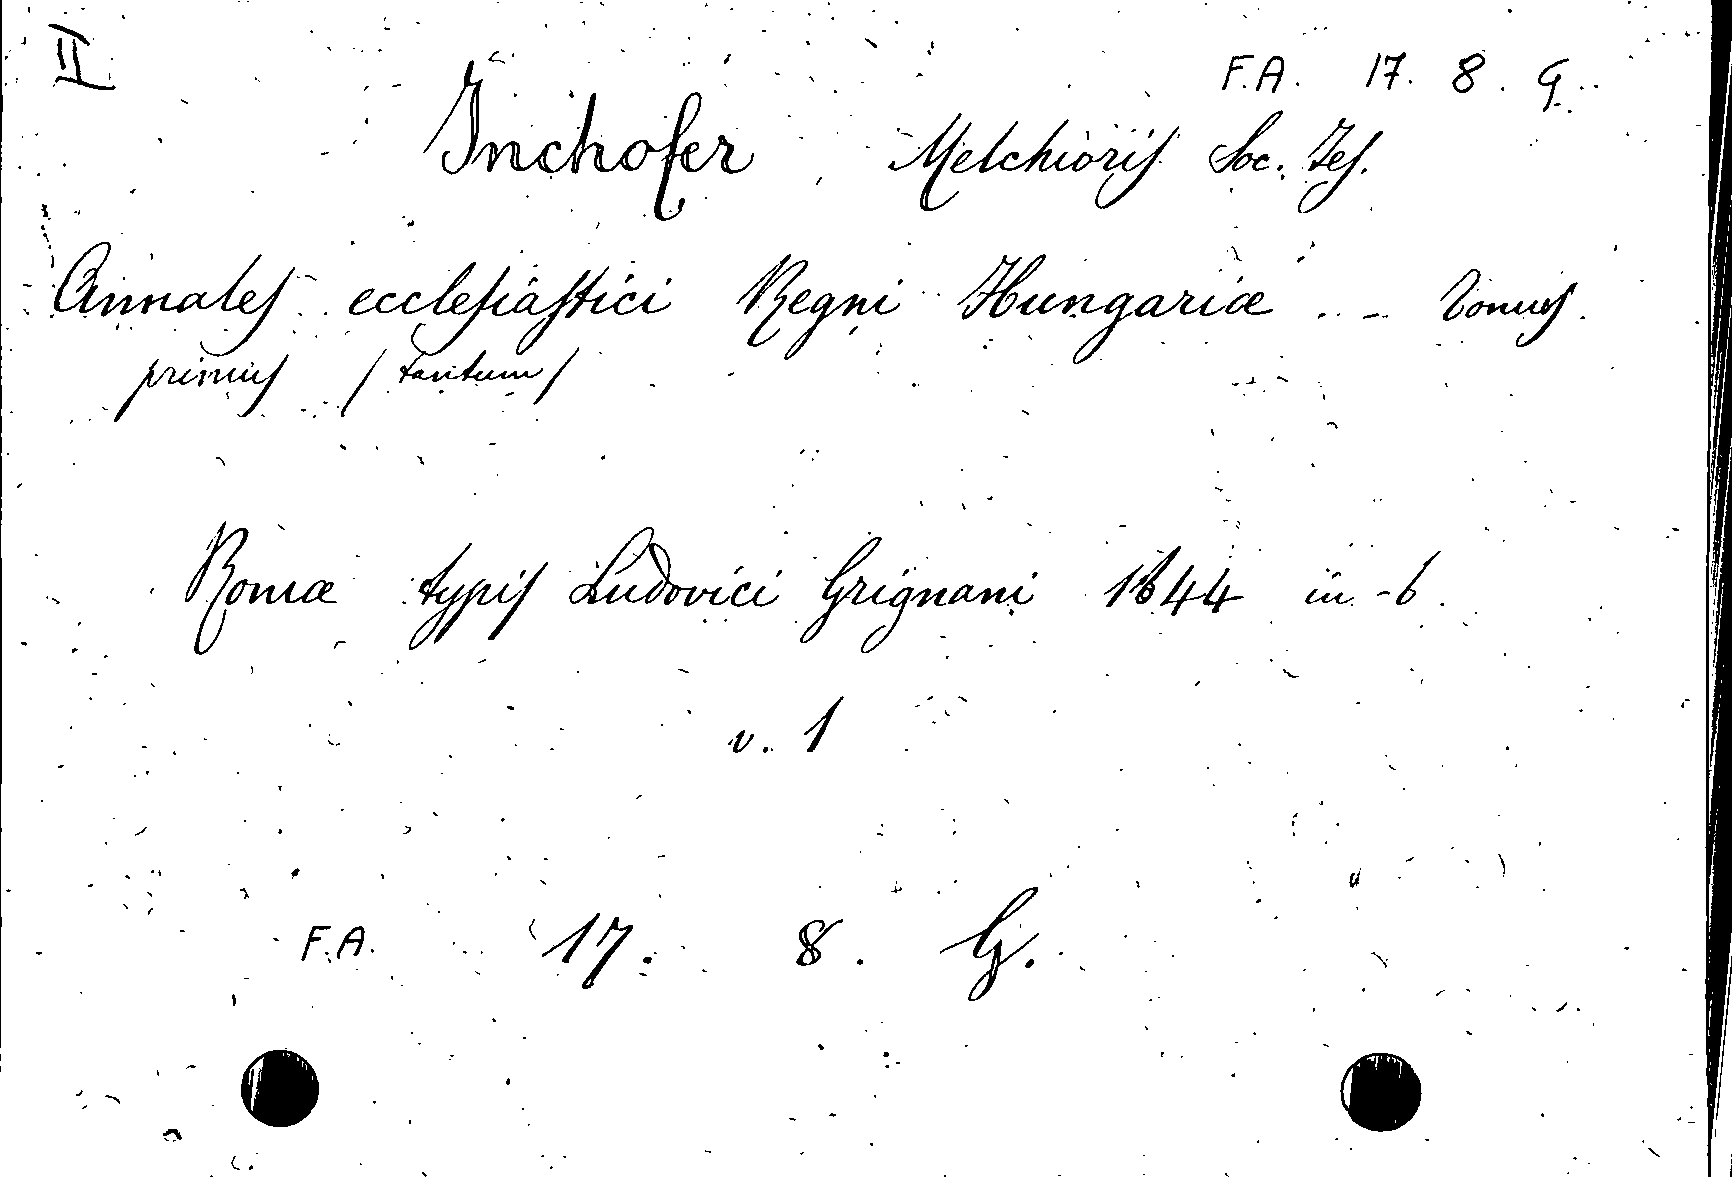 II
F.A. 17. 8. G.
Inchofer Melchioris Soc. Jes.
Annales ecclesiastici Regni Hungariæ .. - Tomus
primus / tantum /
Romæ typis Ludovici Grignani 1644 in -6.
v. 1
F.A. 17. 8. G.